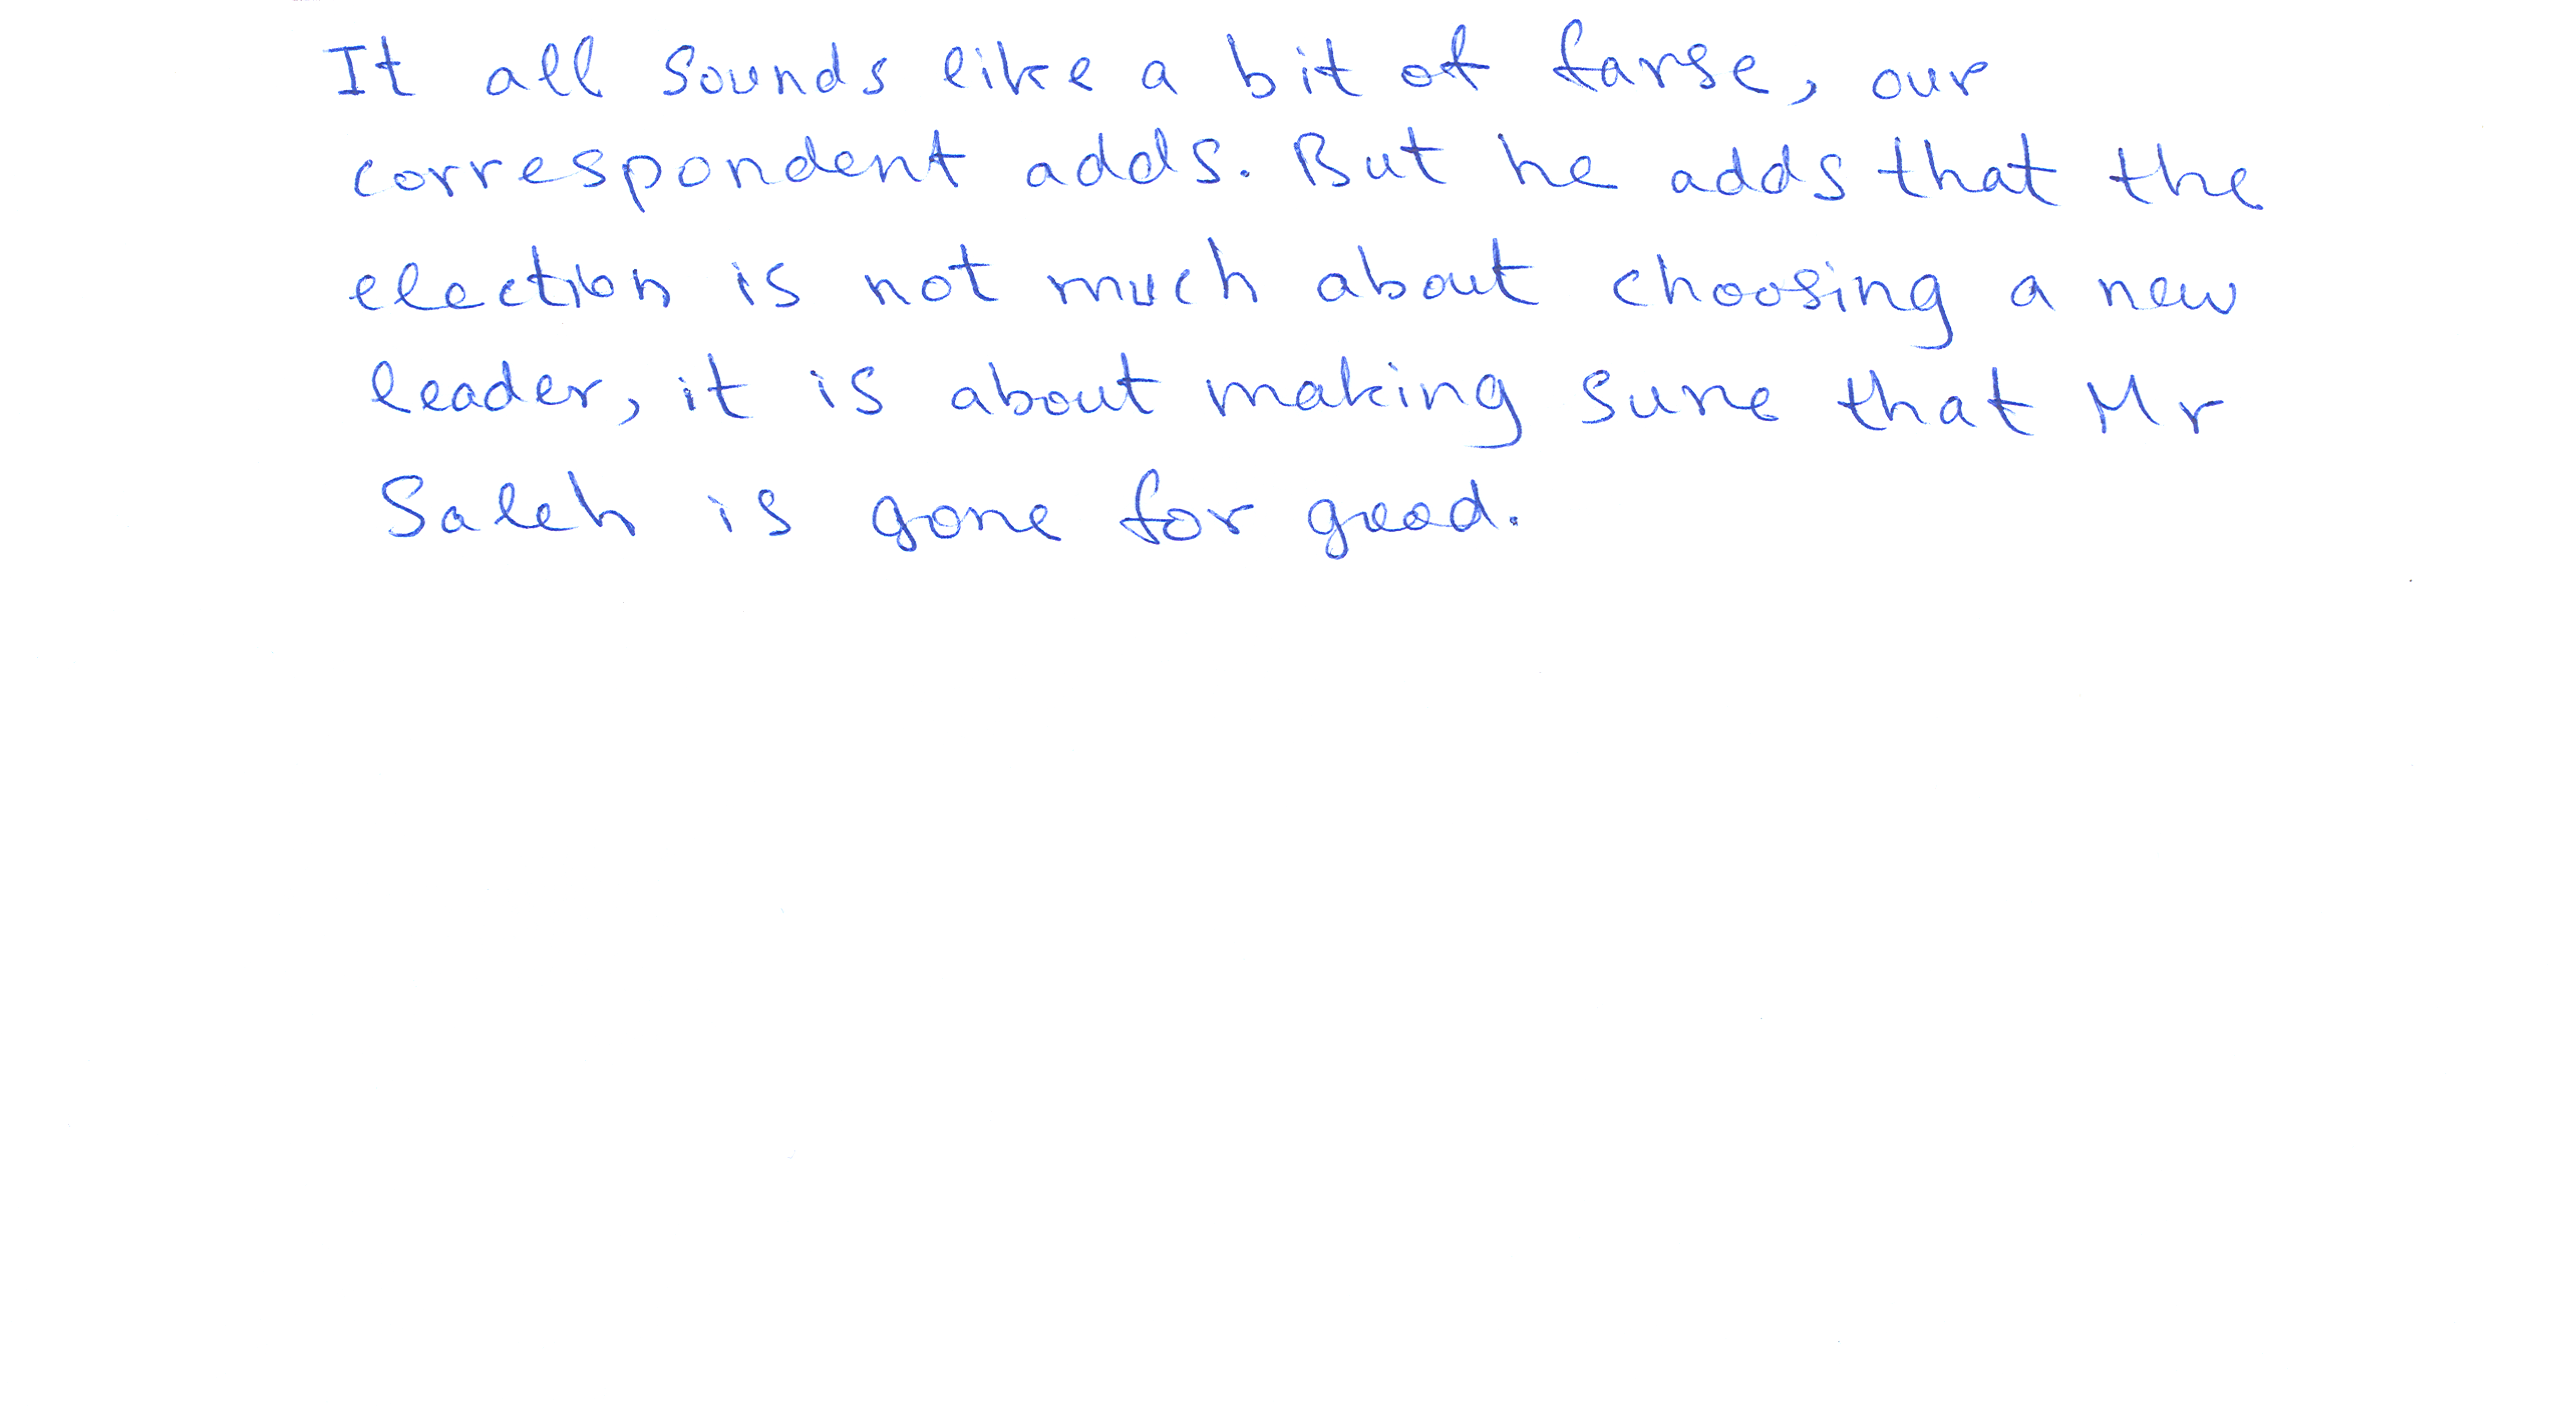 It all sounds like a bit of farse, our
correspondent adds. But he adds that the
election is not much about choosing a new
leader, it is about making sure that Mr
Saleh is gone for good.